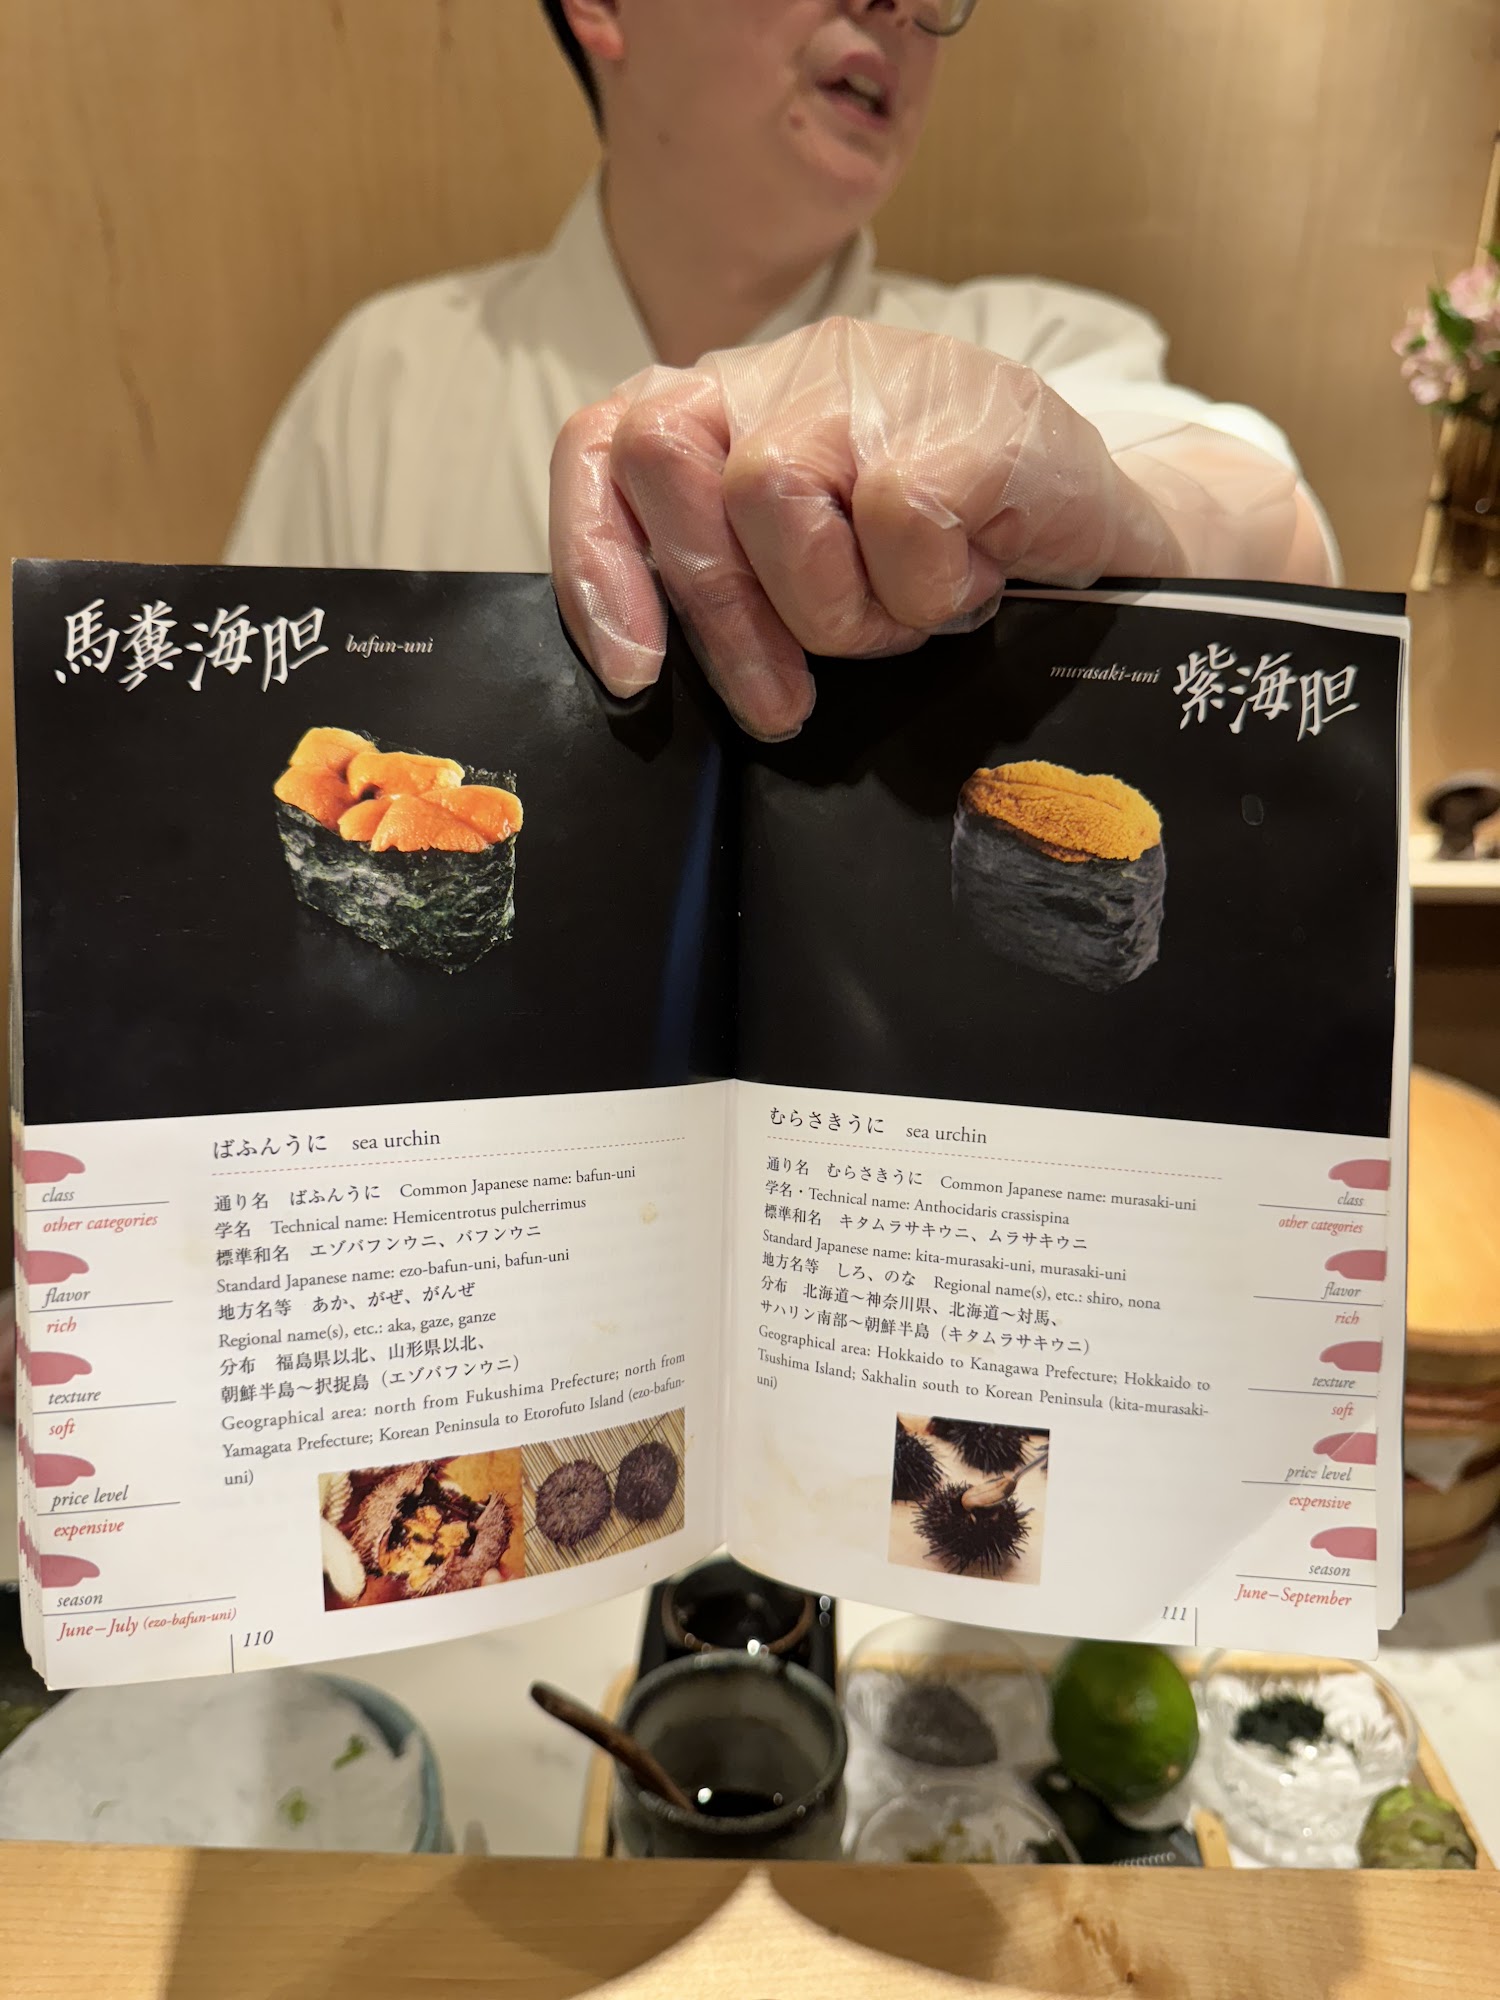 馬糞海胆 bafun-uni
ばふんうに sea urchin
通り名 ばふんうに Common Japanese name: bafun-uni
学名 Technical name: Hemicentrotus pulcherrimus
標準和名 エゾバフンウニ、バフンウニ
Standard Japanese name: ezo-bafun-uni, bafun-uni
地方名等 あか、がぜ、がんぜ
Regional name(s), etc.: aka, gaze, ganze
分布 福島県以北、山形県以北、
朝鮮半島〜択捉島（エゾバフンウニ）
Geographical area: north from Fukushima Prefecture; north from
Yamagata Prefecture; Korean Peninsula to Etorofuto Island (ezo-bafun-
uni)
class
other categories
flavor
rich
texture
soft
price level
expensive
season
June–July (ezo-bafun-uni)
110
murasaki-uni 紫海胆
むらさきうに sea urchin
通り名 むらさきうに Common Japanese name: murasaki-uni
学名・Technical name: Anthocidaris crassispina
標準和名 キタムラサキウニ、ムラサキウニ
Standard Japanese name: kita-murasaki-uni, murasaki-uni
地方名等 しろ、のな Regional name(s), etc.: shiro, nona
分布 北海道〜神奈川県、北海道〜対馬、
サハリン南部〜朝鮮半島（キタムラサキウニ）
Geographical area: Hokkaido to Kanagawa Prefecture; Hokkaido to
Tsushima Island; Sakhalin south to Korean Peninsula (kita-murasaki-
uni)
class
other categories
flavor
rich
texture
soft
price level
expensive
season
June–September
111